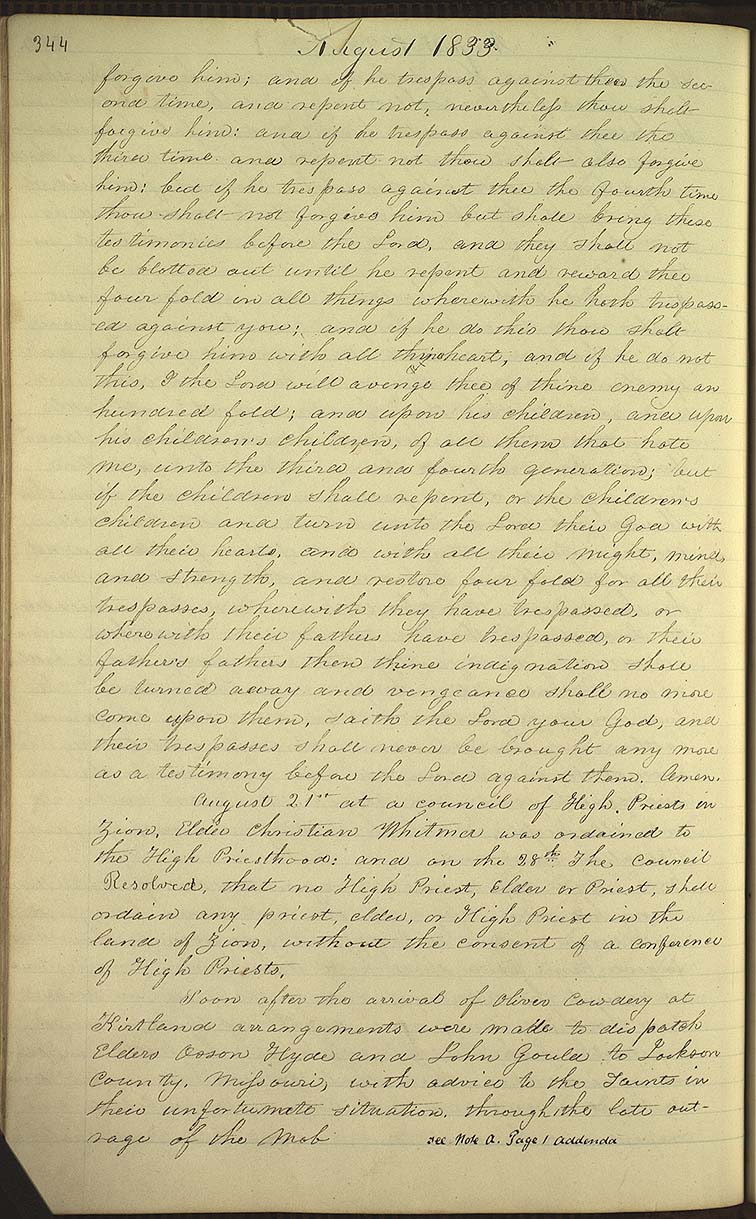 344
August 1833.
forgive him; and if he trespass against thee the sec-
ond time, and repent not, nevertheless thou shalt
forgive him: and if he trespass against thee the
third time and repent not thou shalt also forgive
him: but if he trespass against thee the fourth time
thou shalt not forgive him but shall bring these
testimonies before the Lord, and they shall not
be blotted out until he repent and reward thee
four fold in all things wherewith he hath trespass-
ed against you; and if he do this thou shalt
forgive him with all thine heart, and if he do not
this, I the Lord will avenge thee of thine enemy an
hundred fold; and upon his children, and upon
his children's children, of all them that hate
me, unto the third and fourth generation; but
if the children shall repent, or the children's
children and turn unto the Lord their God with
all their hearts, and with all their might, mind,
and strength, and restore four fold for all their
trespasses, wherewith they have trespassed, or
wherewith their fathers have trespassed, or their
father's fathers then thine indignation shall
be turned away and vengeance shall no more
come upon them, saith the Lord your God, and
their trespasses shall never be brought any more
as a testimony before the Lord against them. Amen.
August 21st at a council of High Priests in
Zion, Elder Christian Whitmer was ordained to
the High Priesthood: and on the 28th The council
Resolved, that no High Priest, Elder or Priest, shall
ordain any priest, elder, or High Priest in the
land of Zion, without the consent of a conference
of High Priests.
Soon after the arrival of Oliver Cowdery at
Kirtland arrangements were made to dispatch
Elders Orson Hyde and John Gould to Jackson
County, Missouri, with advice to the Saints in
their unfortunate situation, through the late out-
rage of the Mob
see Note A. Page 1 addenda